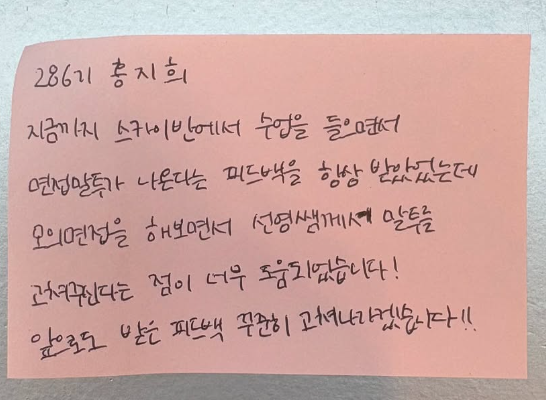 286기 홍지희
지금까지 스카이반에서 수업을 들으면서
면접말투가 나온다는 피드백을 항상 받았었는데
모의면접을 해보면서 선영쌤께서 말투를
고쳐주신다는 점이 너무 도움되었습니다!
앞으로도 받은 피드백 꾸준히 고쳐나가겠습니다!!